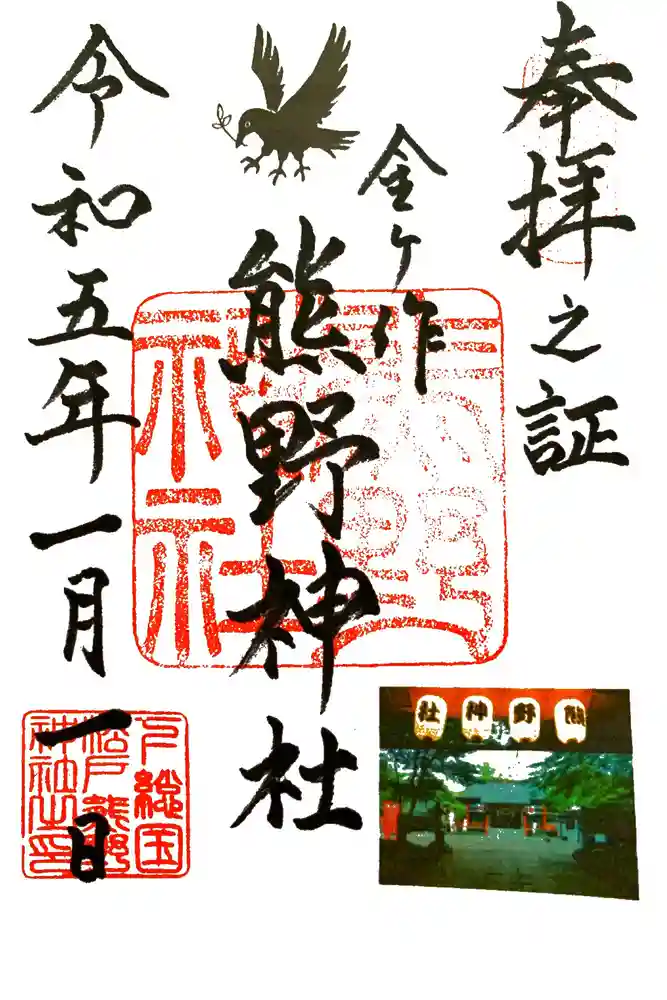 奉拝之証
金ケ作
熊野神社
令和五年一月一日
熊野神社
下総国
松戸熊野
神社之印
社神野熊